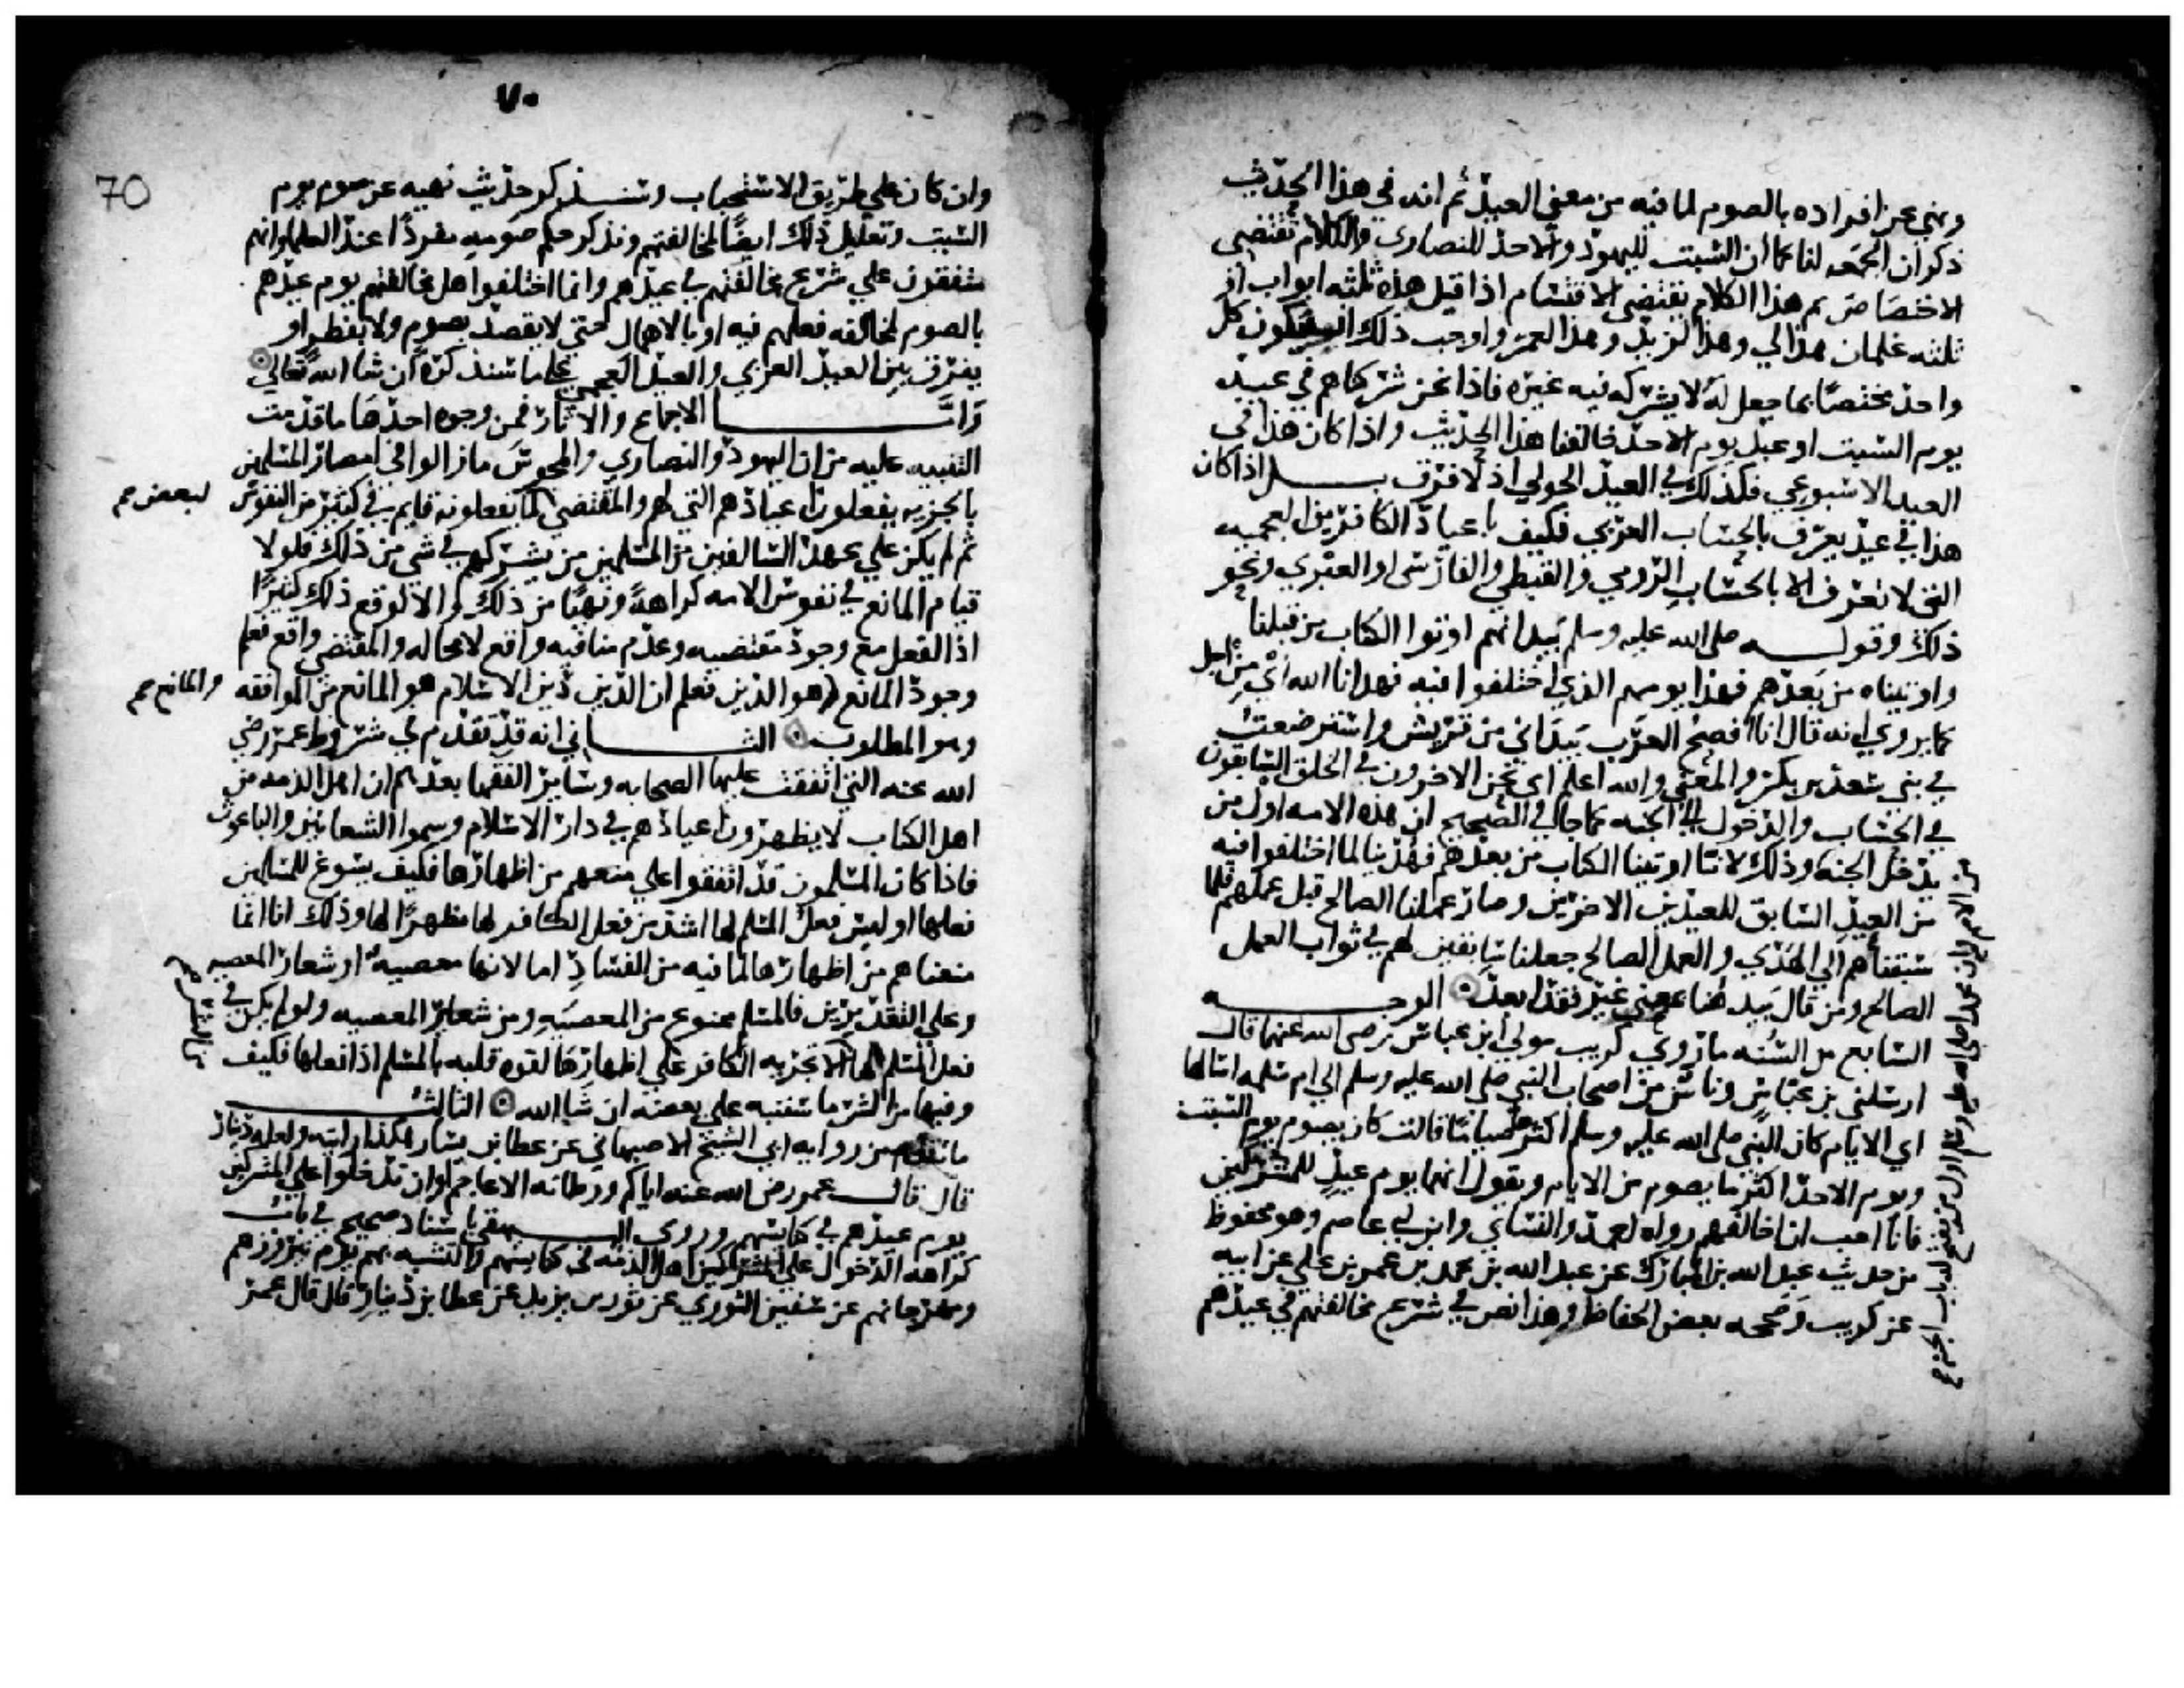 ونهى عن افراده بالصوم لما فيه من معنى العيد ثم انه في هذا الحديث
ذكر ان الجمعه لنا كما ان السبت لليهود والاحد للنصارى والكلام تقتضى
الاختصاص ثم هذا الكلام يقتضى الاقتسام اذا قيل هذه ثلثه ابواب او
ثلثه غلمان هذا لي وهذا لزيد وهذا لعمر واوجب ذلك ان يكون كل
واحد مختصا بما جعل له لا يشركه فيه غيره فاذا نحن شركناهم في عيد
يوم السبت او عيد يوم الاحد خالفنا هذا الحديث واذا كان هذا في
العيد الاسبوعي فكذلك في العيد الحولي اذ لا فرق بل اذا كان
هذا في عيد يعرف بالحساب العربي فكيف باعياد الكافرين العجميه
التي لا تعرف الا بالحساب الرومي والقبطي والفارسى او العبري ونحو
ذلك وقوله صلى الله عليه وسلم بيد انهم اوتوا الكتاب من قبلنا
واوتيناه من بعدهم فهذا يومهم الذي اختلفوا فيه فهدانا الله اي من اجل
كما يروي انه قال انا افصح العرب بيد اني من قريش واسترضعت
في بني سعد بن بكر والمعنى والله اعلم اي نحن الاخرون في الخلق السابقون
في الحساب والدخول الى الجنه كما جا في الصحيح ان هذه الامه اول من
يدخل الجنه وذلك لانا اوتينا الكتاب من بعدهم فهدينا لما اختلفوا فيه
من العيد السابق للعيدين الاخرين وصار عملنا الصالح قبل عملهم فلما
سبقناهم الى الهدي والعمل الصالح جعلنا سابقين لهم في ثواب العمل
الصالح ومن قال بيد هنا بمعنى غير فقد ابعد الوجه
السابع من السنه ما روي كريب مولي ابن عباس رضى الله عنهما قال
ارسلنى بن عباس وناس من اصحاب النبي صلى الله عليه وسلم الي ام سلمه اسالها
اي الايام كان النبي صلى الله عليه وسلم اكثرها صياما قالت كان يصوم يوم السبت
ويوم الاحد اكثر ما يصوم من الايام ويقول انهما يوم عيد للمشركين
فانا احب ان اخالفهم رواه احمد والنساي وابن ابي عاصم وهو محفوظ
من حديث عبد الله بن المبارك عن عبد الله بن محمد بن عمر بن علي عن ابيه
عن كريب وصححه بعض الحفاظ وهذا نص في شرع مخالفتهم في عيدهم
من الامم وان محمدا صلى الله عليه وسلم اول من يفتح له باب الجنه
٧٠
70
وان كان علي طريق الاستحباب وسنذكر حديث نهيه عن صوم يوم
السبت وتعليل ذلك ايضا لمخالفتهم ونذكر حكم صومه مفردا عند العلما وانهم
متفقون علي شرع مخالفتهم في عيدهم وانما اختلفوا هل مخالفتهم يوم عيدهم
بالصوم لمخالفه فعلهم فيه او بالاهمال حتي لا يقصد بصوم ولا بفطر او
يفرق بين العيد العربي والعيد العجمي علي ما سنذكره ان شا الله تعالي
واما الاجماع والاثار فمن وجوه احدها ما قدمت
التنبيه عليه من ان اليهود والنصاري والمجوس ما زالوا في امصار المسلمين
بالجزيه يفعلون اعيادهم التي لهم والمقتضي لما يفعلونه قايم في كثير من النفوس
لبعض صح
ثم لم يكن علي عهد السالفين من المسلمين من يشركهم في شي من ذلك فلولا
قيام المانع في نفوس الامه كراهة ونهيا من ذلك والا لوقع ذلك كثيرا
اذ الفعل مع وجود مقتضيه وعدم منافيه واقع لا محاله والمقتضي واقع فعلم
وجود المانع هو الدين فعلم ان الدين دين الاسلام هو المانع من الموافقه
والمانع صح
وهو المطلوب الثاني انه قد تقدم في شروط عمر رضي
الله عنه التي اتفقت عليها الصحابه وساير الفقها بعدهم ان اهل الذمه من
اهل الكتاب لا يظهرون اعيادهم في دار الاسلام وسموا الشعانين والباعوث
فاذا كان المسلمون قد اتفقوا علي منعهم من اظهارها فكيف يسوغ للمسلمين
فعلها اوليس فعل المسلم لها اشد من فعل الكافر لها مظهرا لها وذلك انا انما
منعناهم من اظهارها لما فيه من الفساد اما لانها معصية او شعار المعصيه
وعلي التقديرين فالمسلم ممنوع من المعصيه ومن شعاير المعصيه ولو لم يكن في
فعل المسلم لها الا تجزيه الكافر علي اظهارها لقوه قلبه بالمسلم اذا فعلها فكيف
وفيها من الشر ما سننبه علي بعضه ان شا الله الثالث
ما تقدم من روايه ابي الشيخ الاصبهاني عن عطا بن يسار هكذا رايته ولعله دينار
قال قال عمر رضى الله عنه اياكم ورطانه الاعاجم وان تدخلوا علي المشركين
يوم عيدهم في كنايسهم وروى البيهقي باسناد صحيح في باب
كراهه الدخول علي المشركين اهل الذمه في كنايسهم والتشبه بهم يوم نيروزهم
ومهرجانهم عن سفين الثوري عن ثور بن يزيد عن عطا بن دينار قال قال عمر